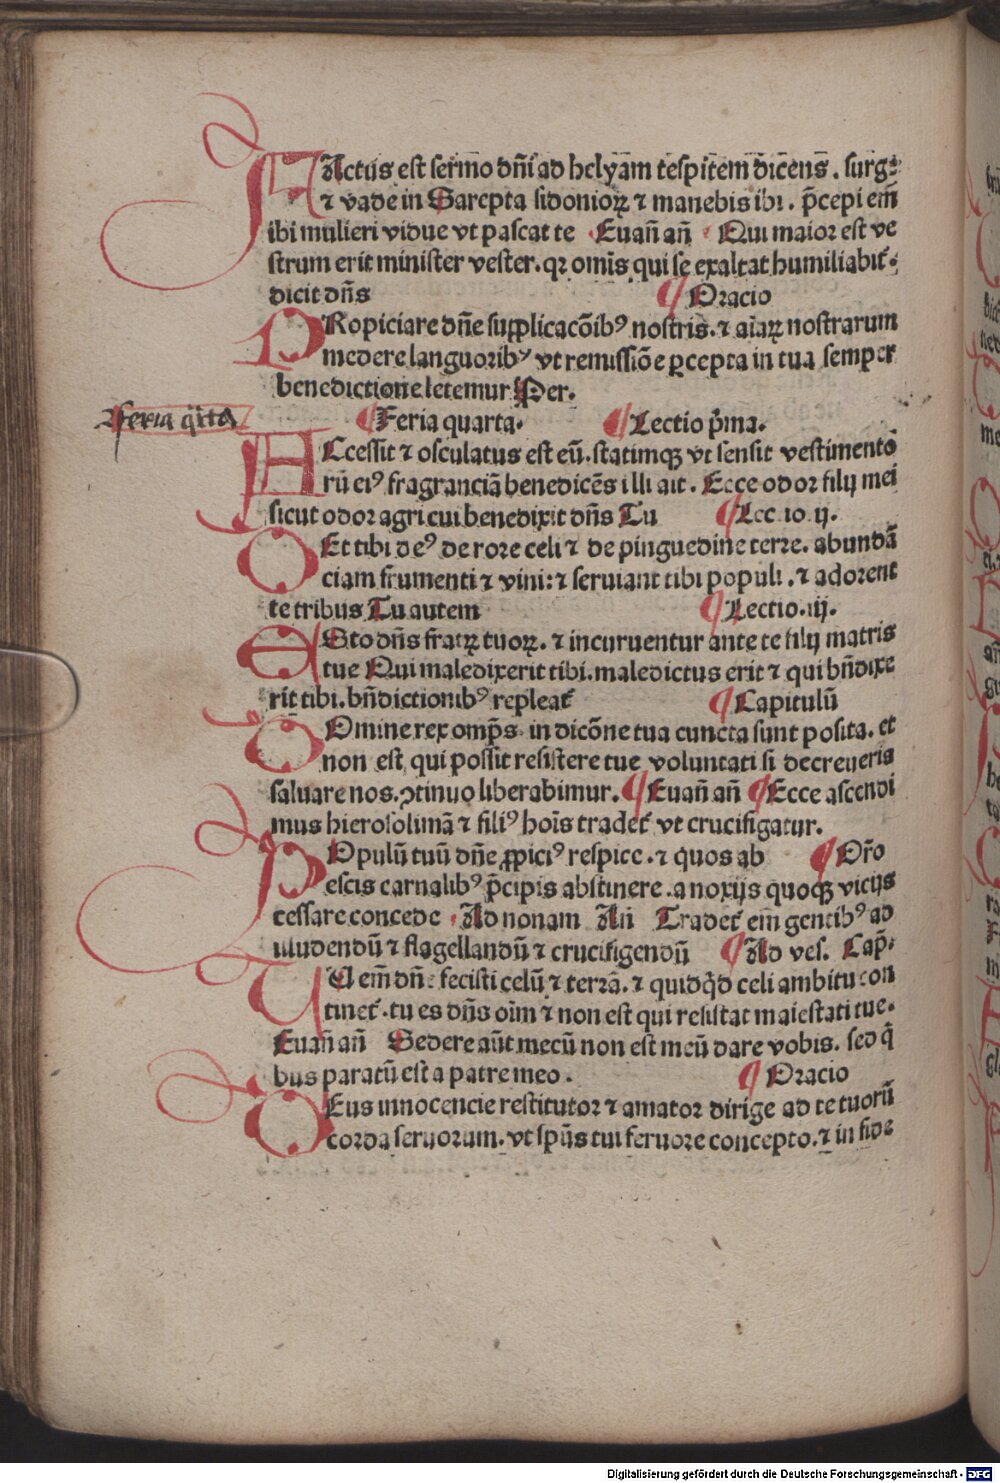 FActus est sermo dn̄i ad helyam tespitem dicens̄. surge
⁊ vade in Sarepta sidonioꝝ ⁊ manebis ibi. p̄cepi em̄
ibi mulieri vidue vt pascat te Euan̄ an̄ Qui maior est ve
strum erit minister vester. qꝛ omīs qui se exaltat humiliabit᷑.
dicit dn̄s ¶ Oracio
PRopiciare dn̄e supplicacōibꝰ nostris. ⁊ aīaꝝ nostrarum
medere languoribꝰ vt remissiōe ꝑcepta in tua semper
benedictione letemur Per.
Feria q̈rta
¶ Feria quarta. ¶ Lectio p̄ma.
ACcessit ⁊ osculatus est eū. statimqꝫ vt sensit vestimento
rū eiꝰ fragranciā benedicēs illi ait. Ecce odor filij mei
sicut odor agri cui benedixit dn̄s Tu ¶ Leccio .ij.
DEt tibi deꝰ de rore celi ⁊ de pinguedine terre. abundā
ciam frumenti ⁊ vini: ⁊ seruiant tibi populi. ⁊ adorent
te tribus Tu autem ¶ Lectio .iij.
ESto dn̄s fratꝝ tuoꝝ. ⁊ incuruentur ante te filij matris
tue Qui maledixerit tibi. maledictus erit ⁊ qui bn̄dixe
rit tibi. bn̄dictionibꝰ repleat᷑ ¶ Capitulū
DOmine rex omp̄s in dicōne tua cuncta sunt posita. et
non est, qui possit resistere tue voluntati si decreueris
saluare nos. ꝯtinuo liberabimur. ¶ Euan̄ an̄ ¶ Ecce ascendi
mus hierosolimā ⁊ filiꝰ hoīs tradet᷑ vt crucifigatur.
POpulū tuū dn̄e ꝓpiciꝰ respice. ⁊ quos ab ¶ Or̄o
escis carnalibꝰ p̄cipis abstinere. a noxijs quoqꝫ vicijs
cessare concede Ad nonam An̄ Tradet᷑ em̄ gentibꝰ ad
illudendū ⁊ flagellandū ⁊ crucifigendū ¶ Ad ves. Cap̄.
TU em̄ dn̄e fecisti celū ⁊ terrā. ⁊ quidq̄d celi ambitu con
tinet᷑. tu es dn̄s oīm ⁊ non est qui resistat maiestati tue.
Euan̄ an̄ Sedere aūt mecū non est meū dare vobis. sed q̄
bus paratū est a patre meo. ¶ Oracio
DEus innocencie restitutor ⁊ amator dirige ad te tuorū
corda seruorum. vt sp̄us tui feruore concepto. ⁊ in fide
Digitalisierung gefördert durch die Deutsche Forschungsgemeinschaft - DFG